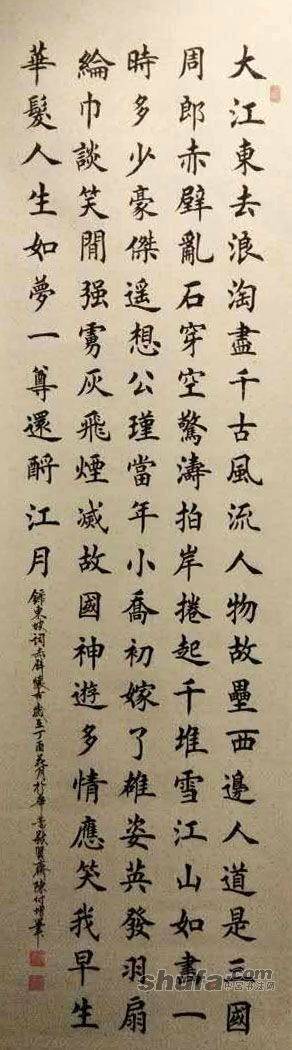 大江東去浪淘盡千古風流人物故壘西邊人道是三國
周郎赤壁亂石穿空驚濤拍岸捲起千堆雪江山如畫一
時多少豪傑遥想公瑾當年小喬初嫁了雄姿英發羽扇
綸巾談笑閒强虜灰飛煙滅故國神遊多情應笑我早生
華髮人生如夢一尊還酹江月
錄東坡詞赤壁懷古歲在丁酉 月於 齋陳付增筆
shufa.com
中国书法网